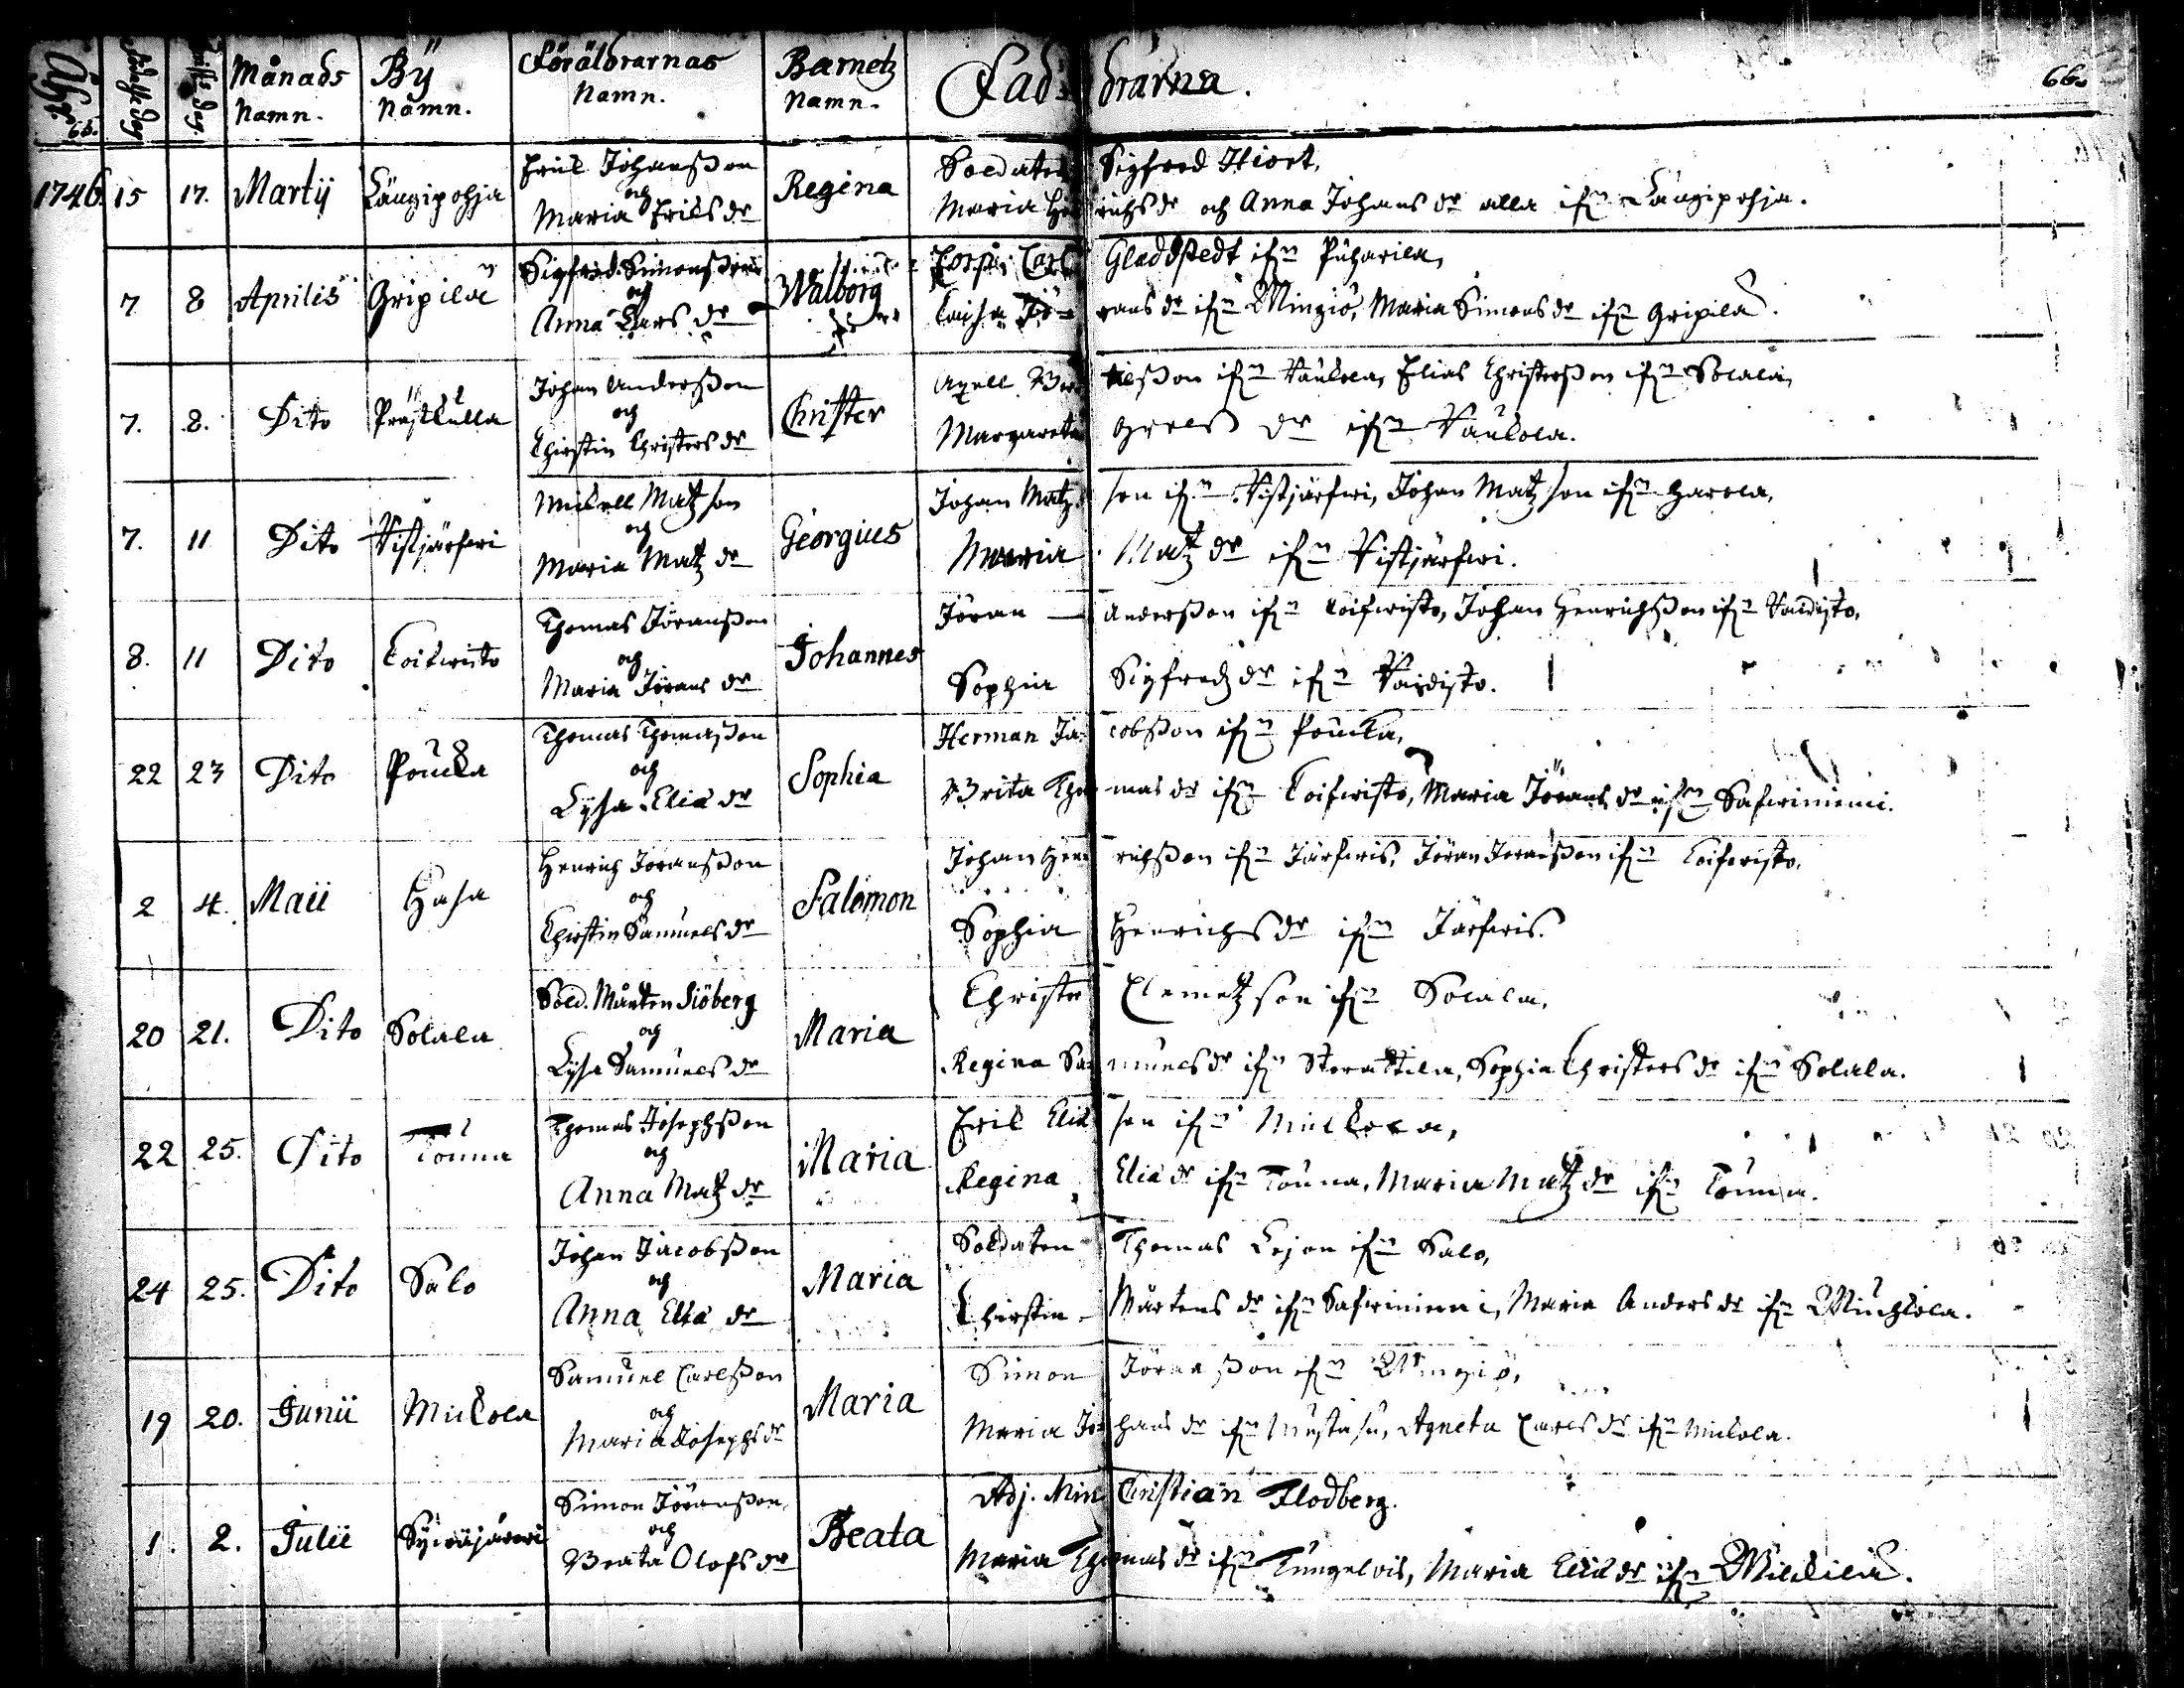 Åhr. Födelse Dag Månads Bÿ Föräldrarnas Barnetz Fad- drarna. 66.
65. Namn. Namn. Namn. Namn.
1746. 15 17. Martÿ Längipohja Erik Johansson och Maria Ericsdr Regina Soldaten Sigfred Hiort,
Maria Henrichsdr och Anna Johansdr alla ifrn Längipohja.
7 8 Aprilis Gripilä Sigfred Simonsson och Anna Larsdr Walborg Corp: Carl Gladdstedt ifrn Puharila,
Caisa Jöransdr ifrn Mingiö, Maria Simonsdr ifrn Gripilä.
7. 8. Dito Prästkulla Johan Andersson och Christin Christersdr Christer Axell Bertilsson ifrn Kaukola, Elias Christersson ifrn Solala,
Margareta Grelsdr ifrn Kaukola.
7. 11 Dito Kistjärfwi Mickell Matzson och Maria Matzdr Georgius Johan Matzson ifrn Kistjärfwi, Johan Matzson ifrn Harola,
Maria Matzdr ifrn Kistjärfwi.
8. 11 Dito Koifwisto Thomas Jöransson och Maria Jöransdr Johannes Jöran Andersson ifrn Koifwisto, Johan Henrichsson ifrn Kaidisto,
Sophia Sigfredzdr ifrn Kaidisto.
22 23 Dito Poucka Thomas Thomasson och Lysa Eliædr Sophia Herman Jacobsson ifrn Poucka,
Brita Thomasdr ifrn Koifwisto, Maria Jöransdr ifrn Safwiniemi.
2 4. Maii Hasa Henrich Jöransson och Christin Samuelsdr Salomon Johan Henrichsson ifrn Järfwis, Jöran Jöransson ifrn Koifwisto,
Sophia Henrichsdr ifrn Järfwis.
20 21. Dito Solala Sold. Mårten Siöberg och Lysa Samuelsdr Maria Christer Clemetzson ifrn Solala,
Regina Samuelsdr ifrn Storattila, Sophia Christersdr ifrn Solala.
22 25. Dito Touna Thomas Josephsson och Anna Matzdr Maria Erik Eliæson ifrn Mickola,
Regina Eliædr ifrn Touna, Maria Matzdr ifrn Touna.
24 25. Dito Salo Johan Jacobsson och Anna Eliædr Maria Soldaten Thomas Lejon ifrn Salo,
Christin Mårtensdr ifrn Safwiniemi, Maria Andersdr ifrn Muchkola.
19 20. Junii Mickola Samuel Carlsson och Maria Josephsdr Maria Simon Jöransson ifrn Mingiö,
Maria Johansdr ifrn Mustasu, Agneta Carlsdr ifrn Mickola.
1. 2. Julii Sÿwäjärwi Simon Jöransson och Beata Olofsdr Beata Adj. Min Christian Flodberg.
Maria Thomasdr ifrn Kungelois, Maria Eliædr ifrn Mickilä.